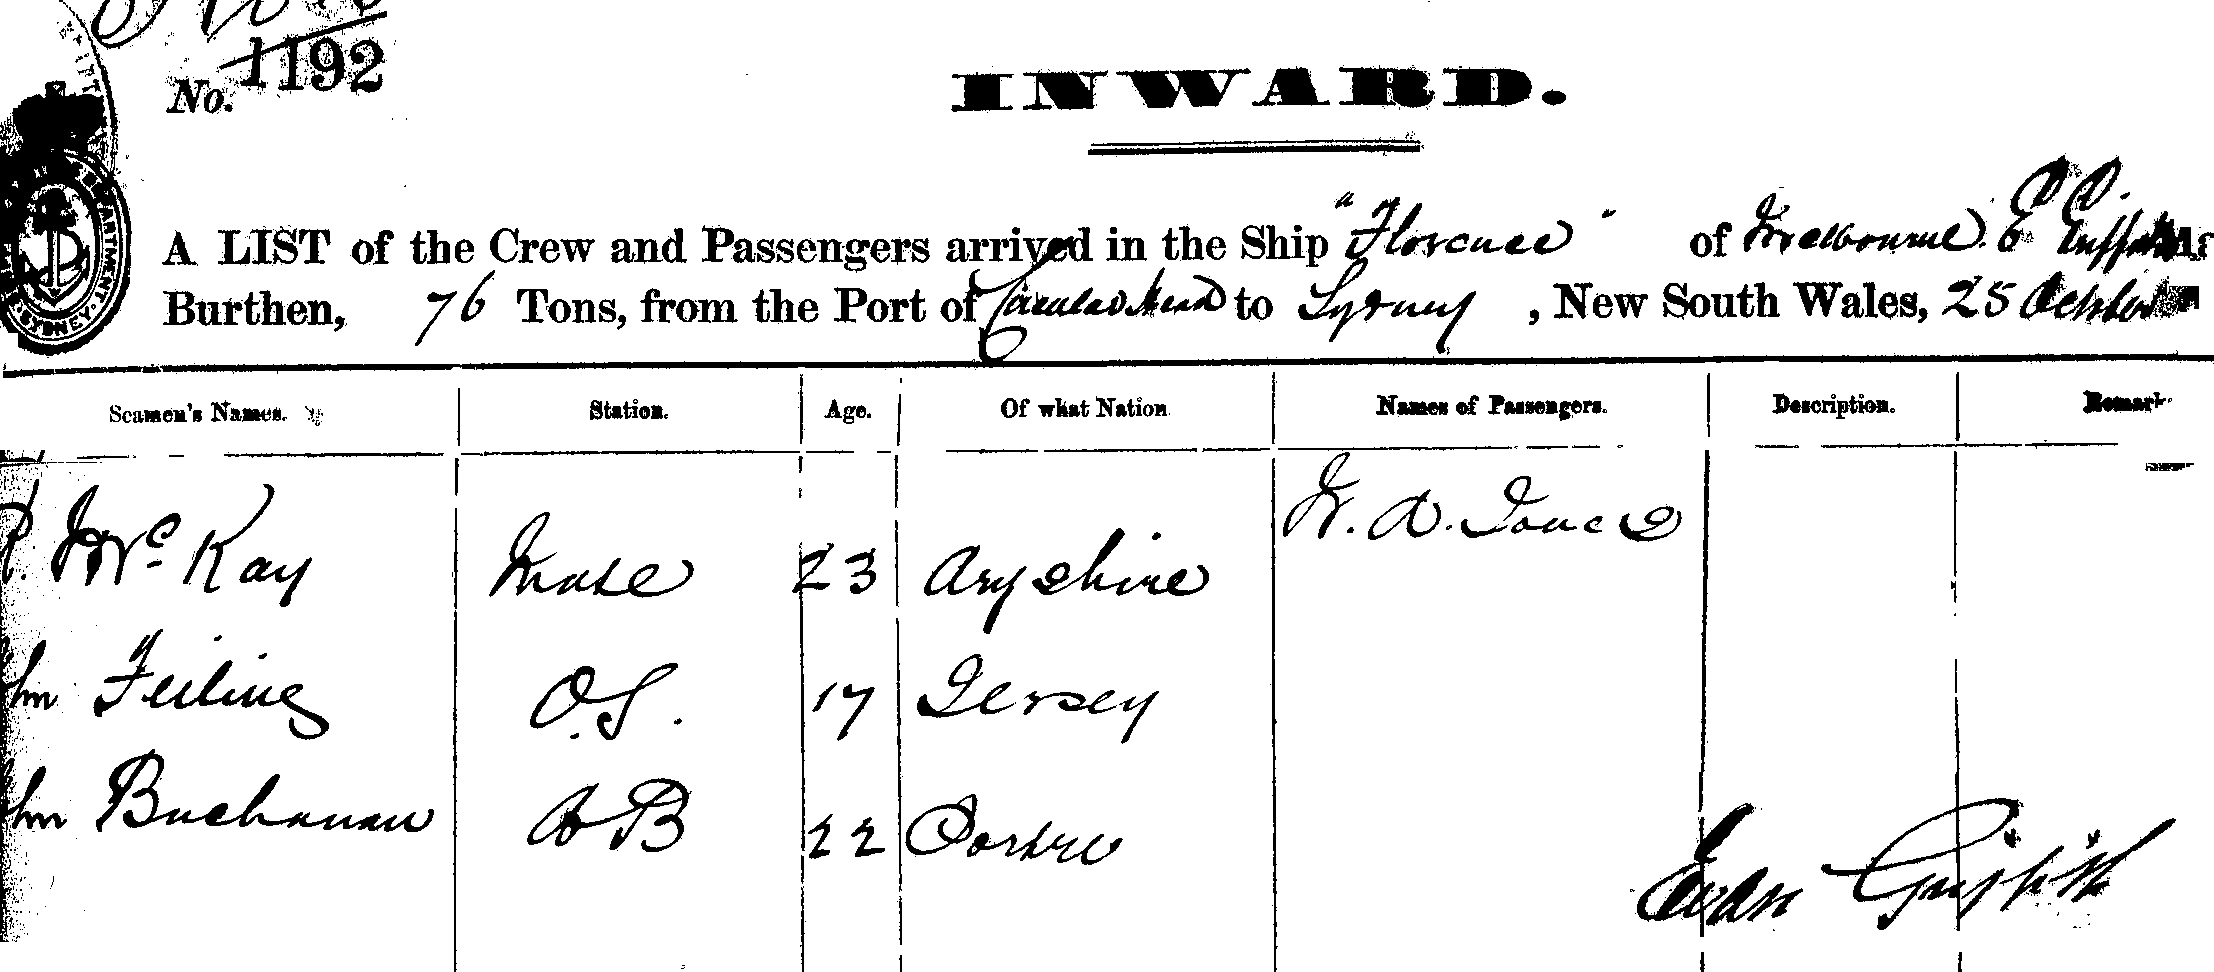 No. 1192
INWARD.
A LIST of the Crew and Passengers arrived in the Ship "Florence" of Melbourne. E
Burthen, 76 Tons, from the Port of Circular Head to Sydney, New South Wales, 25 October
Seamen's Names. Station. Age. Of what Nation Names of Passengers. Description. Remark
W. D. Jones
McKay Mate 23 Aryshire
hn Feiling O.S. 17 Jersey
hn Buchanan AB 22 Portree
Evan Griffith
SYDNEY